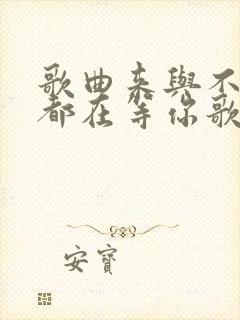 歌曲来與不
都在等你歌
安寶